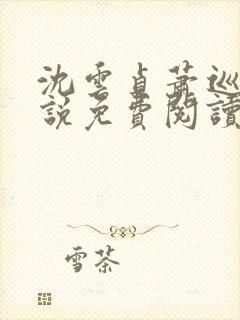 沈雲貞蕭巡
說免費閱讀
雪茶